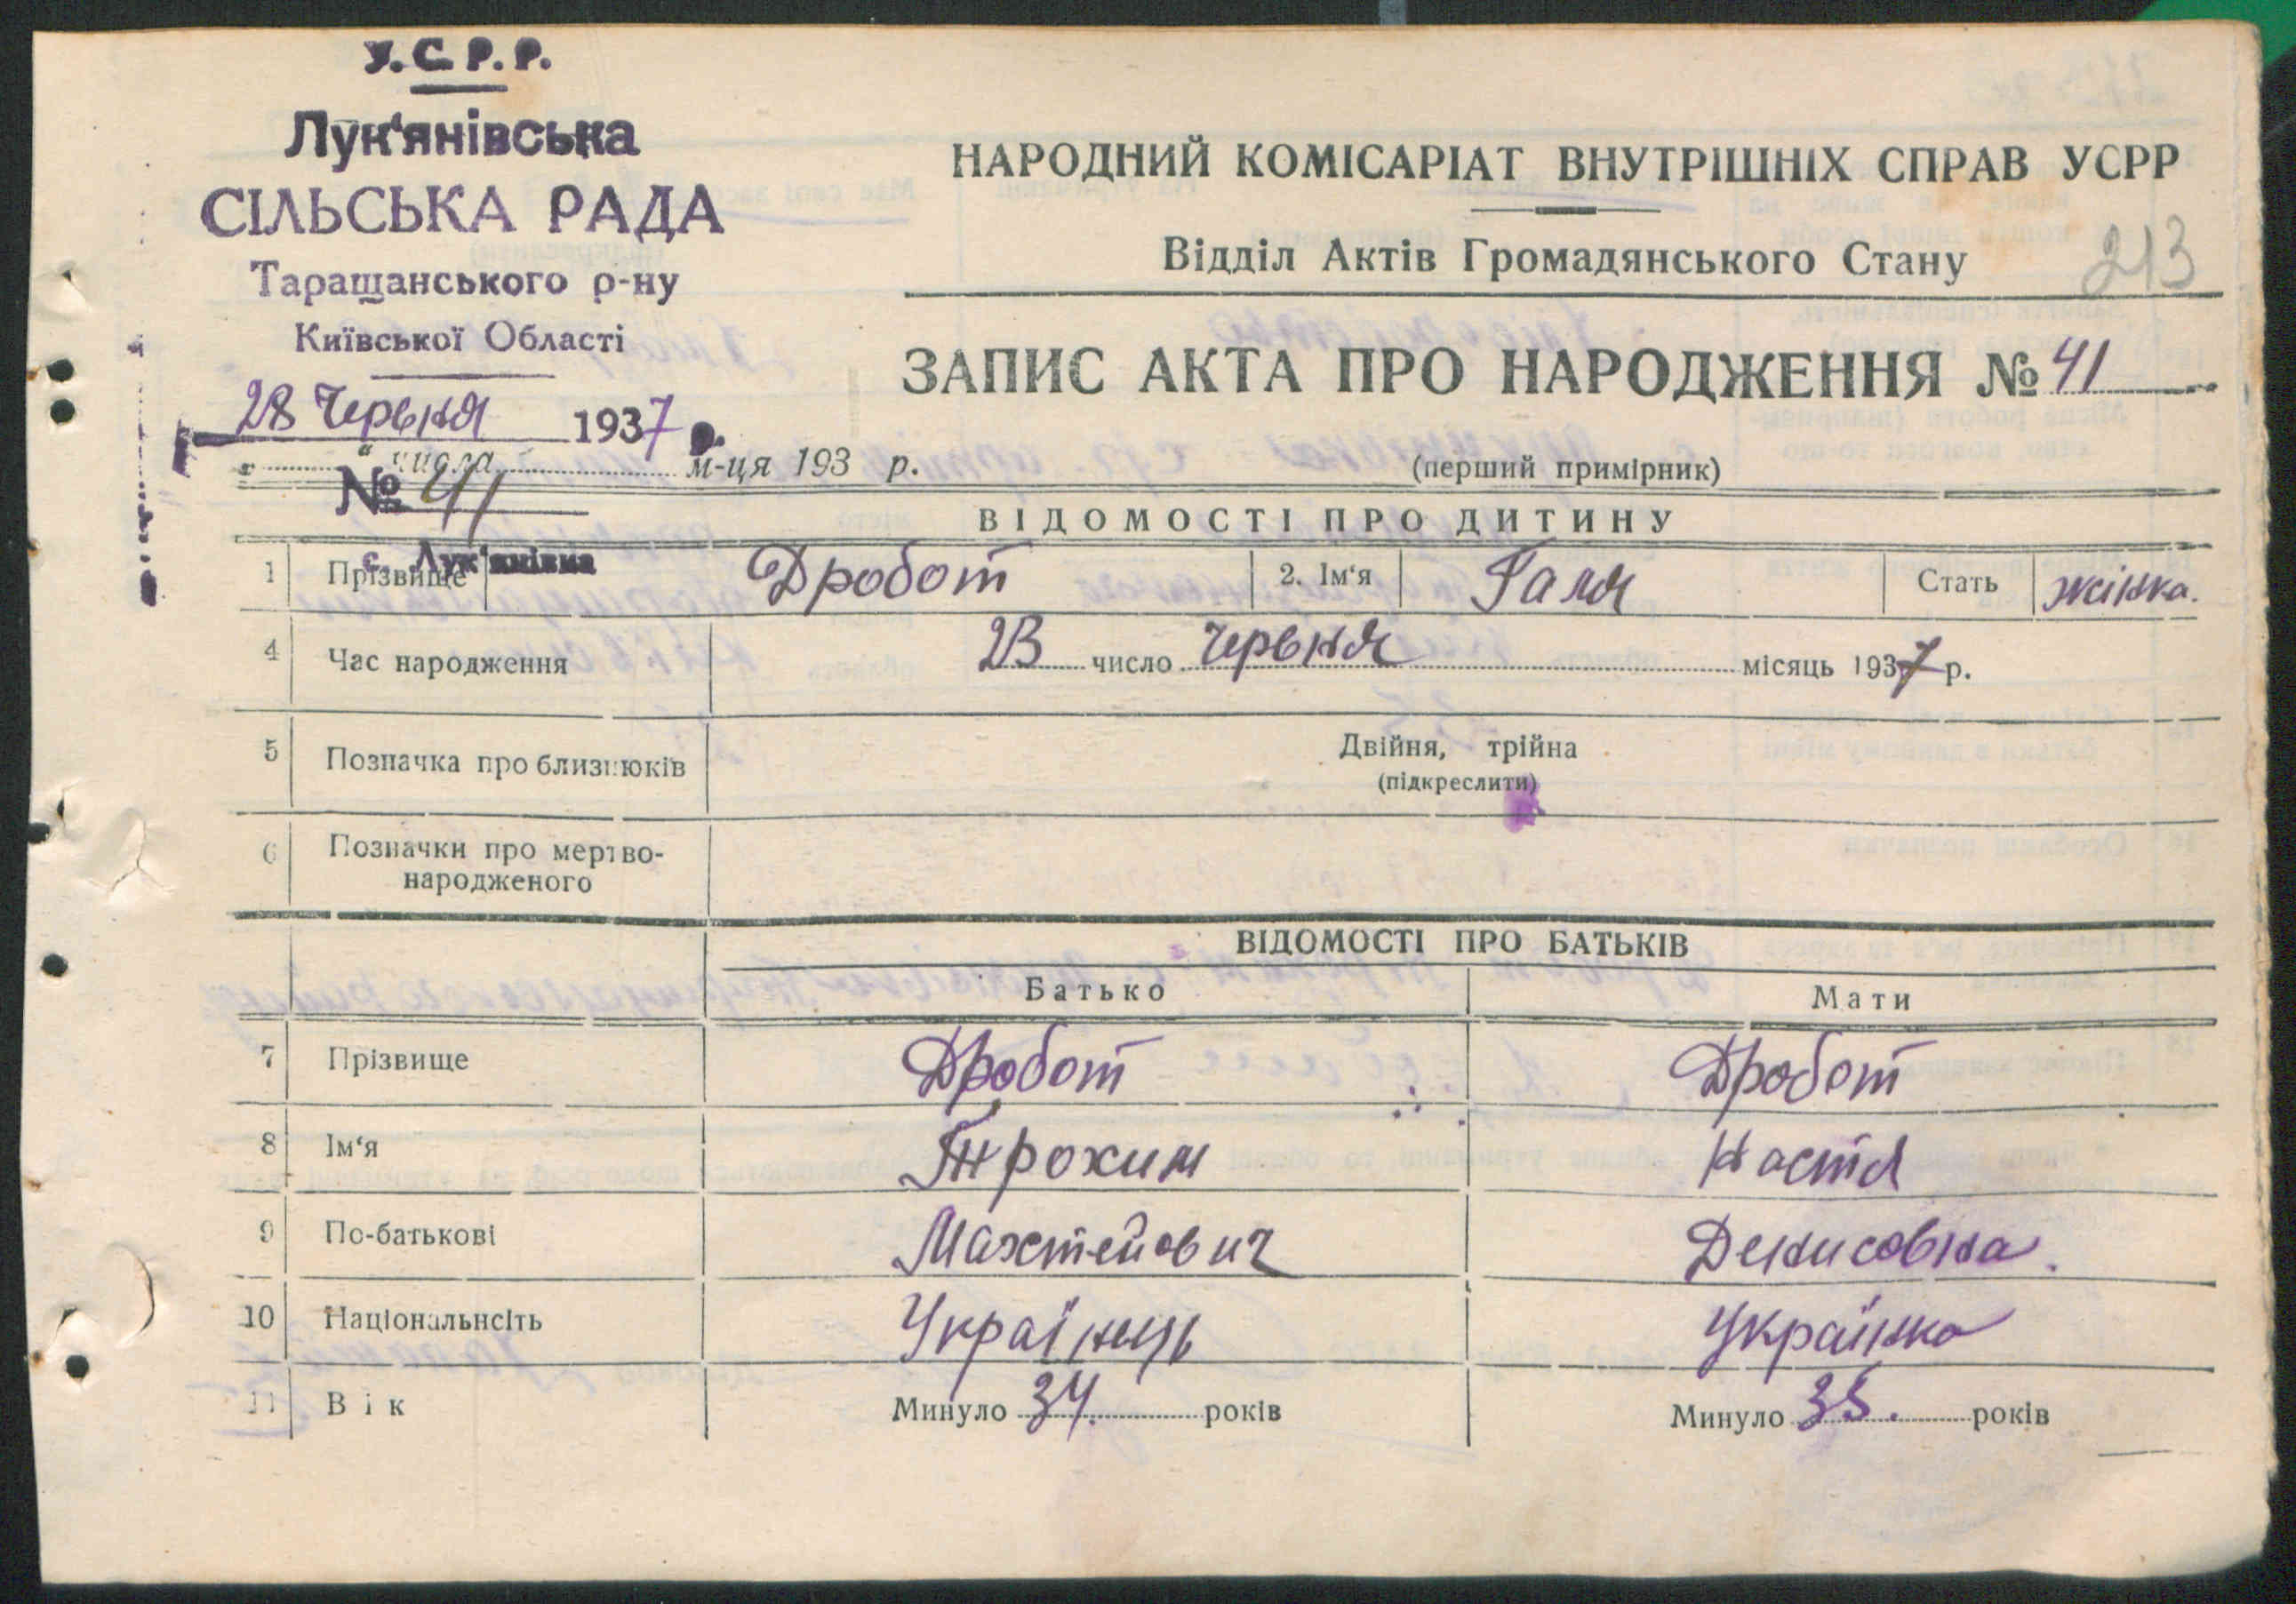 У.С.Р.Р.
Лук'янівська
СІЛЬСЬКА РАДА
Таращанського р-ну
Київської Області
28 Червня 1937 р.
" числа м-ця 193 р.
№ 41
с. Лук'янівка
НАРОДНИЙ КОМІСАРІАТ ВНУТРІШНІХ СПРАВ УСРР
Відділ Актів Громадянського Стану
213
ЗАПИС АКТА ПРО НАРОДЖЕННЯ № 41
(перший примірник)
ВІДОМОСТІ ПРО ДИТИНУ
1 Прізвище Дробот 2. Ім'я Галя Стать жінка.
4 Час народження 23 число Червня місяць 1937 р.
5 Позначка про близнюків Двійня, трійна
(підкреслити)
6 Позначки про мертво-
народженого
ВІДОМОСТІ ПРО БАТЬКІВ
Батько Мати
7 Прізвище Дробот Дробот
8 Ім'я Трохим Настя
9 По-батькові Махтейович Денисовна.
10 Національнсіть Українець Українка
11 Вік Минуло 34. років Минуло 35. років